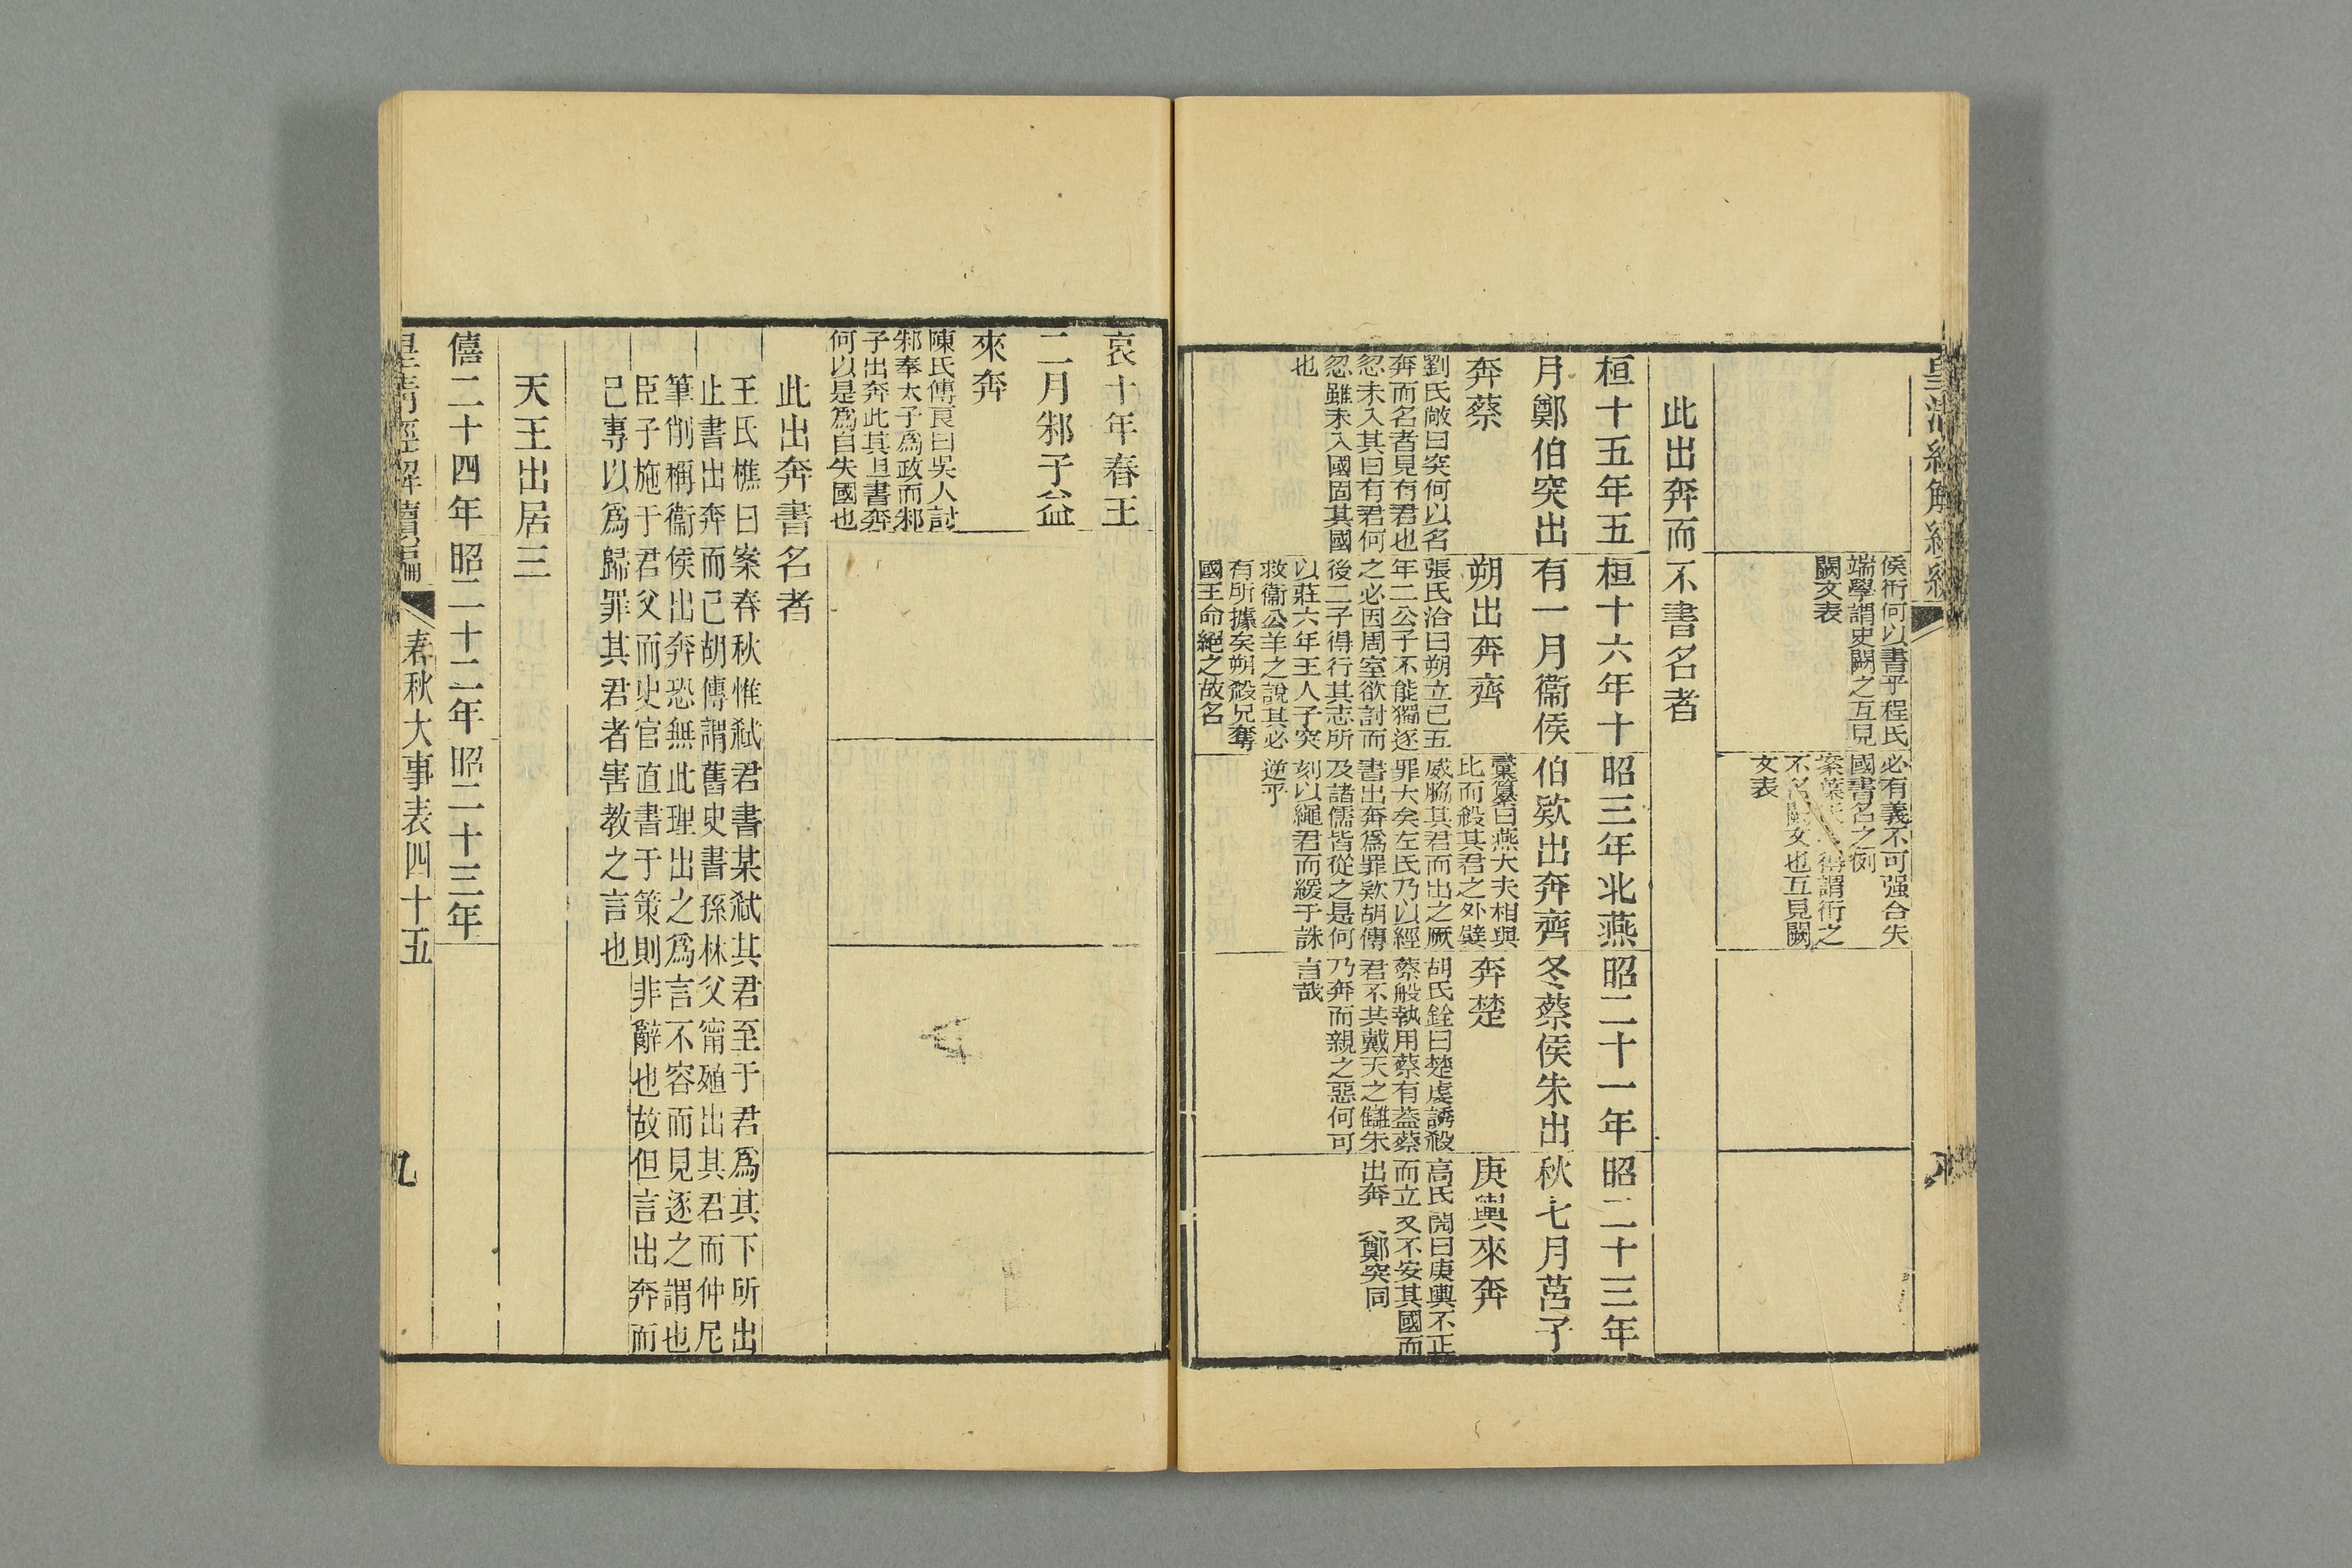 侯衎何以書乎程氏
端學謂史闕之互見
闕文表
必有義不可强合失
國書名之例
案葉氏 得謂衎之
不名闕文也互見闕
文表
此出奔而不書名者
桓十五年五
月鄭伯突出
奔蔡
劉氏敞曰突何以名
奔而名者見有君也
忽未入其曰有君何
忽雖未入國固其國
也
桓十六年十
有一月衞侯
朔出奔齊
張氏洽曰朔立已五
年二公子不能獨逐
之必因周室欲討而
後二子得行其志所
以莊六年王人子突
救衞公羊之說其必
有所據矣朔殺兄奪
國王命絕之故名
昭三年北燕
伯欵出奔齊
彙纂曰燕大夫相與
比而殺其君之外嬖
威脇其君而出之厥
罪大矣左氏乃以經
書出奔爲罪欵胡傳
及諸儒皆從之是何
刻以繩君而緩于誅
逆乎
昭二十一年
冬蔡侯朱出
奔楚
胡氏銓曰楚虔誘殺
蔡般執用蔡有葢蔡
君不共戴天之讎朱
乃奔而親之惡何可
言哉
昭二十三年
秋七月莒子
庚輿來奔
高氏閌曰庚輿不正
而立又不安其國而
出奔 鄭突同
哀十年春王
二月邾子益
來奔
陳氏傅良曰吳人討
邾奉太子爲政而邾
子出奔此其旦書奔
何以是爲自失國也
此出奔書名者
王氏樵曰案春秋惟弑君書某弑其君至于君爲其下所出
止書出奔而已胡傳謂舊史書孫林父甯殖出其君而仲尼
筆削稱衞侯出奔恐無此理出之爲言不容而見逐之謂也
臣子施于君父而史官直書于策則非辭也故但言出奔而
已專以爲歸罪其君者害教之言也
天王出居三
僖二十四年
昭二十二年
昭二十三年
皇清經解續編
春秋大事表四十五
九